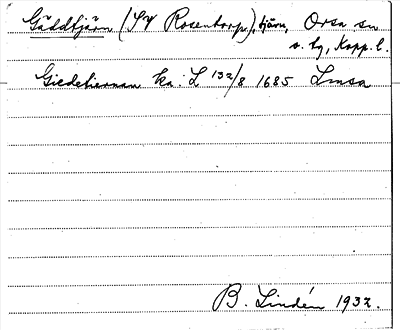 Gäddtjärn (SV Rosentorp), tjärn, Orsa sn
o. tg, Kopp. l.
Giedetiernan ka. L 132/8 1685 Lmsa
B. Lindén 1932.